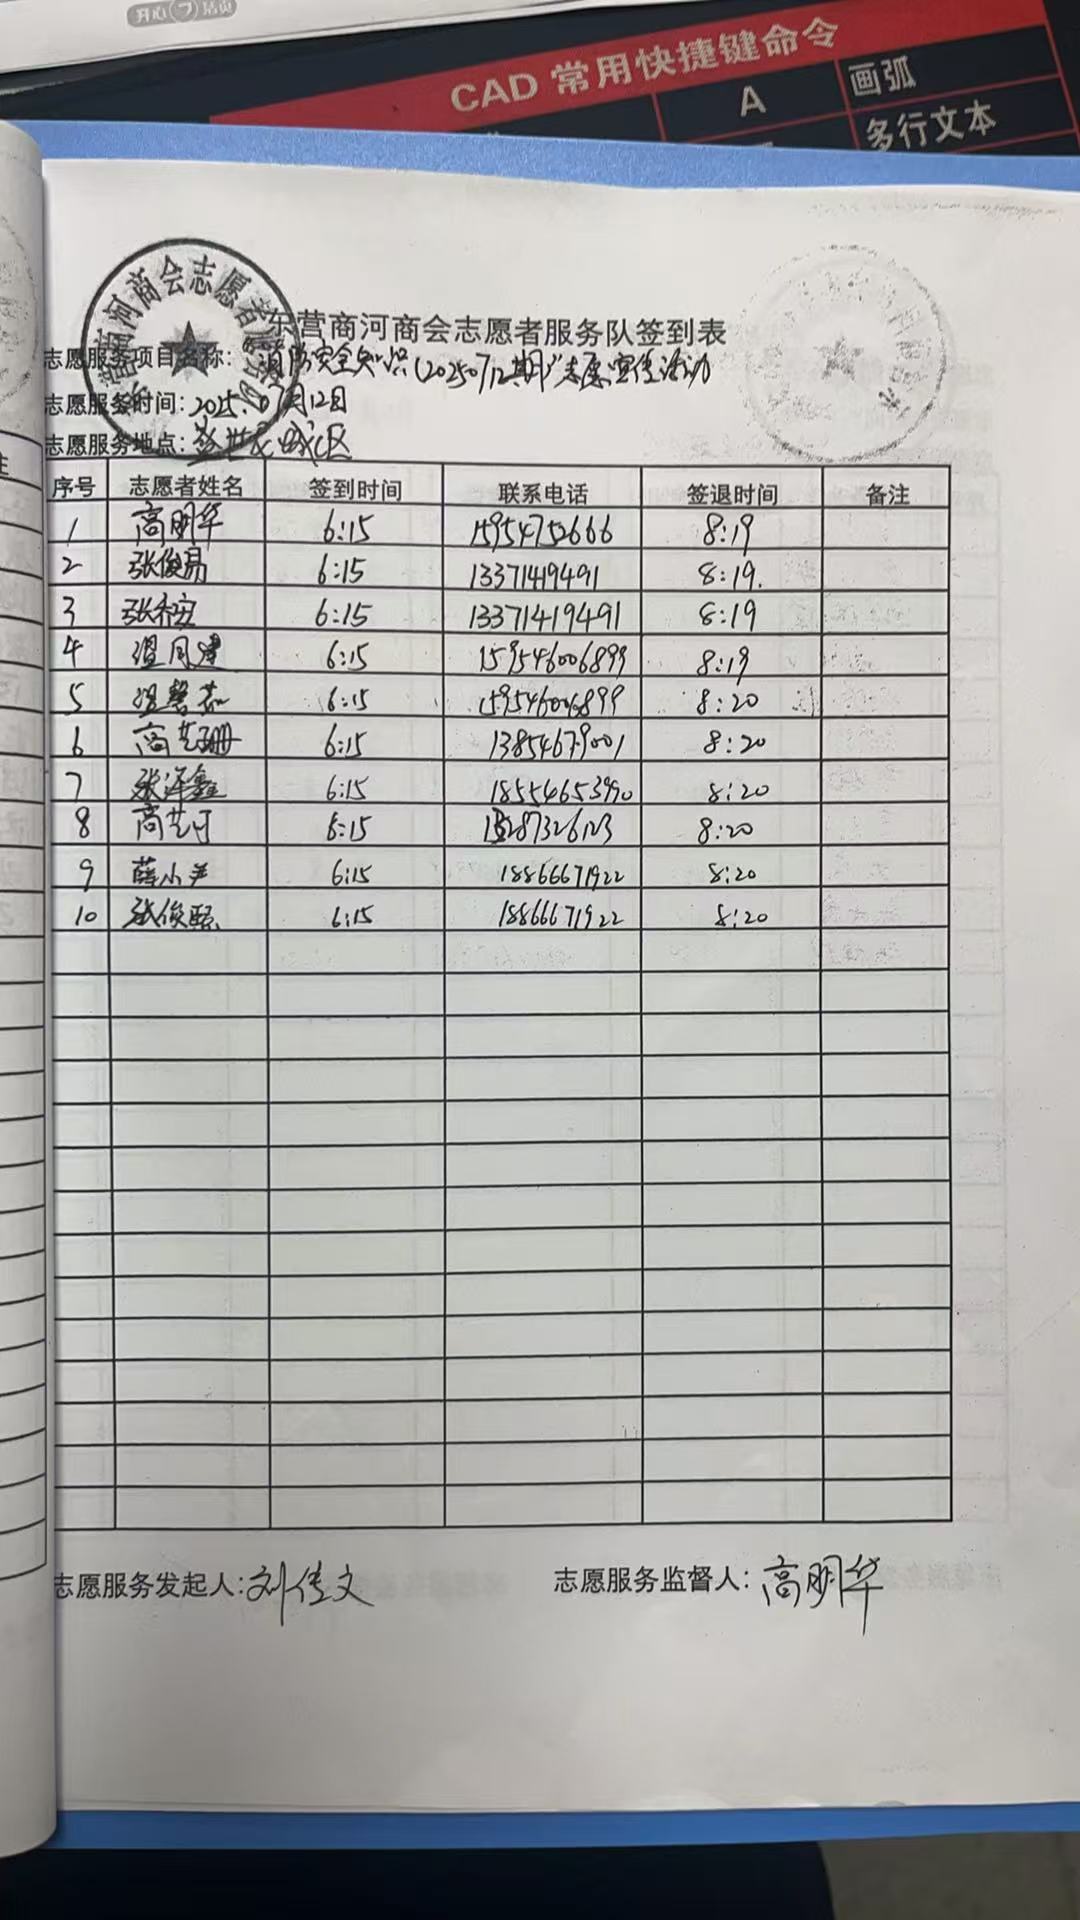 开心 7 活页
CAD 常用快捷键命令
A 画弧
多行文本
东营商河商会志愿者服务队签到表
志愿服务项目名称：“消防安全知识(20250712期)”志愿宣传活动
志愿服务时间：2025.07月12日
志愿服务地点：社区
序号 志愿者姓名 签到时间 联系电话 签退时间 备注
1 高明华 6:15 15954752666 8:19
2 张俊易 6:15 13371419491 8:19.
3 张 6:15 13371419491 8:19
4 温月建 6:15 159546006899 8:19
5 温馨茹 6:15 159546006899 8:20
6 高艺珊 6:15 13854679001 8:20
7 张泽鑫 6:15 18554653990 8:20
8 高艺可 6:15 8:20
9 薛小尹 6:15 18866671922 8:20
10 张俊熙 6:15 18866671922 8:20
志愿服务发起人：刘佳文 志愿服务监督人：高明华